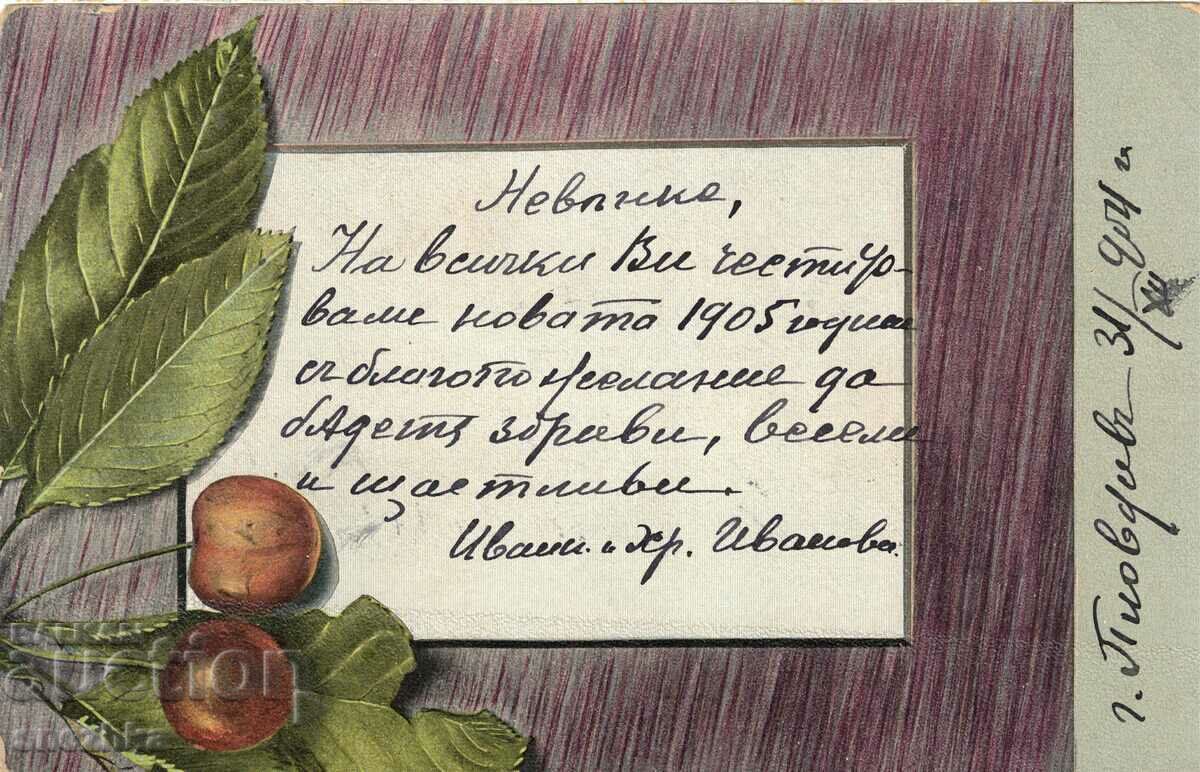 Невянке,
На всички Ви честитя-
ваме новата 1905 година
съ благопожелание да
бѫдете здрави, весели
и щастливи.
Иван. и Хр. Иванова.
г. Пловдивъ 31/XII 904 г.
auction
snezhka